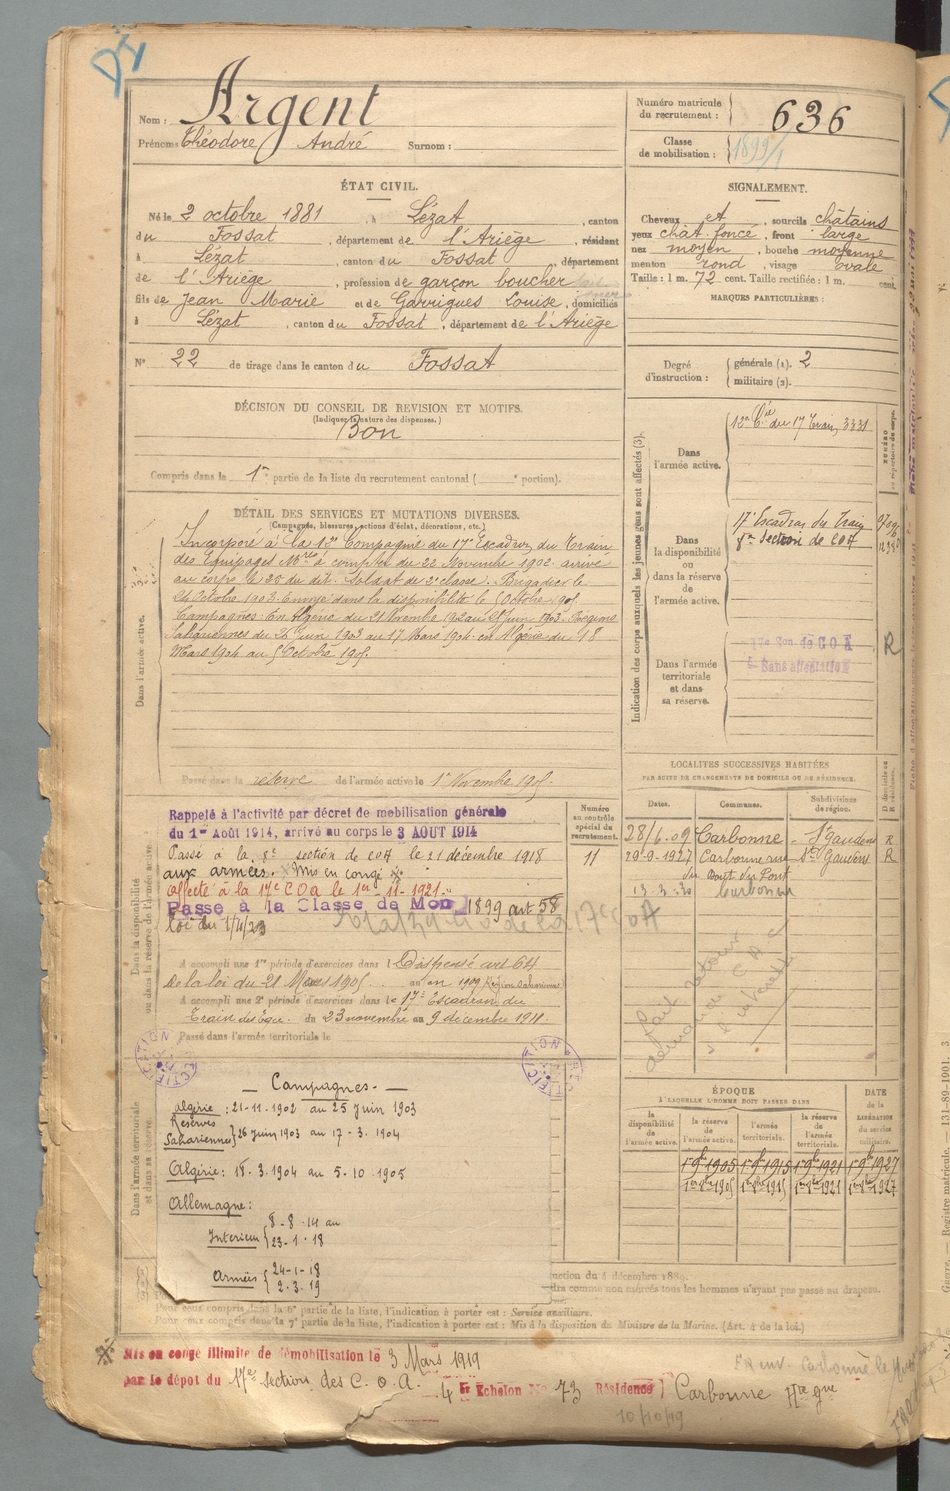 Nom : Argent
Prénoms Théodore André Surnom :
Numéro matricule du recrutement : 636
Classe de mobilisation : 1899/1
ÉTAT CIVIL.
Né le 2 octobre 1881, à Lézat, canton
du Fossat, département de l'Ariège, résidant
à Lézat, canton du Fossat, département
de l'Ariège, profession de garçon boucher
fils de Jean Marie et de Garrigues Louise, domiciliés
à Lézat, canton du Fossat, département de l'Ariège
N° 22 de tirage dans le canton du Fossat
SIGNALEMENT.
Cheveux et, sourcils châtains
yeux chat. foncé, front large
nez moyen, bouche moyenne
menton rond, visage ovale
Taille : 1 m. 72 cent. Taille rectifiée : 1 m. cent.
MARQUES PARTICULIÈRES :
Degré d'instruction : générale (1). 2
militaire (2).
DÉCISION DU CONSEIL DE REVISION ET MOTIFS.
(Indiquer la nature des dispenses.)
Bon
Compris dans la 1re partie de la liste du recrutement cantonal ( e portion).
DÉTAIL DES SERVICES ET MUTATIONS DIVERSES.
(Campagnes, blessures, actions d'éclat, décorations, etc.)
Dans l'armée active.
Incorporé à la 12e Compagnie du 17e Escadron du Train
des Equipages Mres à compter du 22 Novembre 1902. arrivé
au corps le 25 du dit. Soldat de 2e classe. Brigadier le
Octobre 1903. Envoyé dans la disponibilité le 5 Octobre 1905.
Campagnes : En Algérie du 21 Novembre 1902 au 25 Juin 1903. Régions
Sahariennes du 26 Juin 1903 au 17 Mars 1904. en Algérie du 18
Mars 1904 au 5 Octobre 1905.
Passé dans la réserve de l'armée active le 1er Novembre 1905.
Indication des corps auxquels les jeunes gens sont affectés (3).
Dans l'armée active.
12e Cie du 17 Train, 3331
Dans la disponibilité ou dans la réserve de l'armée active.
17e Escadron du Train
Section de COA
Dans l'armée territoriale et dans sa réserve.
17e Son. de COA
Sans affectation
R
Dans la disponibilité ou dans la réserve de l'armée active.
Rappelé à l'activité par décret de mobilisation générale
du 1er Août 1914, arrivé au corps le 3 AOUT 1914
Passé à la section de COA le 21 décembre 1918
aux armées. Mis en congé
affecté à la 17e COA le 1er-11-1921.
Passé à la Classe de Mob 1899 art 58
loi du 1/4/23
A accompli une 1re période d'exercices dans l Dispensé art 64
de la loi du 21 Mars 1905 au en 1909 Région Saharienne
A accompli une 2e période d'exercices dans le 17e Escadron du
Train des Eqes. du 23 novembre au 9 décembre 1911.
Passé dans l'armée territoriale le
Numéro au contrôle spécial du recrutement.
11
LOCALITÉS SUCCESSIVES HABITÉES
PAR SUITE DE CHANGEMENTS DE DOMICILE OU DE RÉSIDENCE.
Dates. Communes. Subdivisions de région.
28/6.09 Carbonne St Gaudens R
29-9-1927 Carbonne rue St Gaudens R
du Bout du Pont
13.3.30 Carbonne
Dans l'armée territoriale et dans sa réserve.
Campagnes
Algérie : 21-11-1902 au 25 juin 1903
Sahariennes 26 juin 1903 au 17-3.1904
Algérie : 18.3.1904 au 5.10.1905
Allemagne :
Intérieur 8-8-14 au 23-1-18
Armées 24-1-18 2.3.19
ÉPOQUE
À LAQUELLE L'HOMME DOIT PASSER DANS
la disponibilité de l'armée active.
la réserve de l'armée active.
l'armée territoriale.
la réserve de l'armée territoriale.
DATE de la LIBÉRATION du service militaire.
1er 9bre 1905 1er 9bre 1915 1er 9bre 1921 1er 9bre 1927
1er 9bre 1905 1er 9bre 1915 1er 9bre 1921 1er 9bre 1927
nction du 4 décembre 1889.
dra comme non mercés tous les hommes n'ayant pas passé au drapeau.
Pour ceux compris dans la 6e partie de la liste, l'indication à porter est : Service auxiliaire.
Pour ceux compris dans la 7e partie de la liste, l'indication à porter est : Mis à la disposition du Ministre de la Marine. (Art. 4 de la loi.)
Mis en congé illimité de démobilisation le 3 Mars 1919
par le dépôt du 17e sections des C.O.A. 4 Er Echelon No 73 Résidence Carbonne Hte Gne
10/10/19